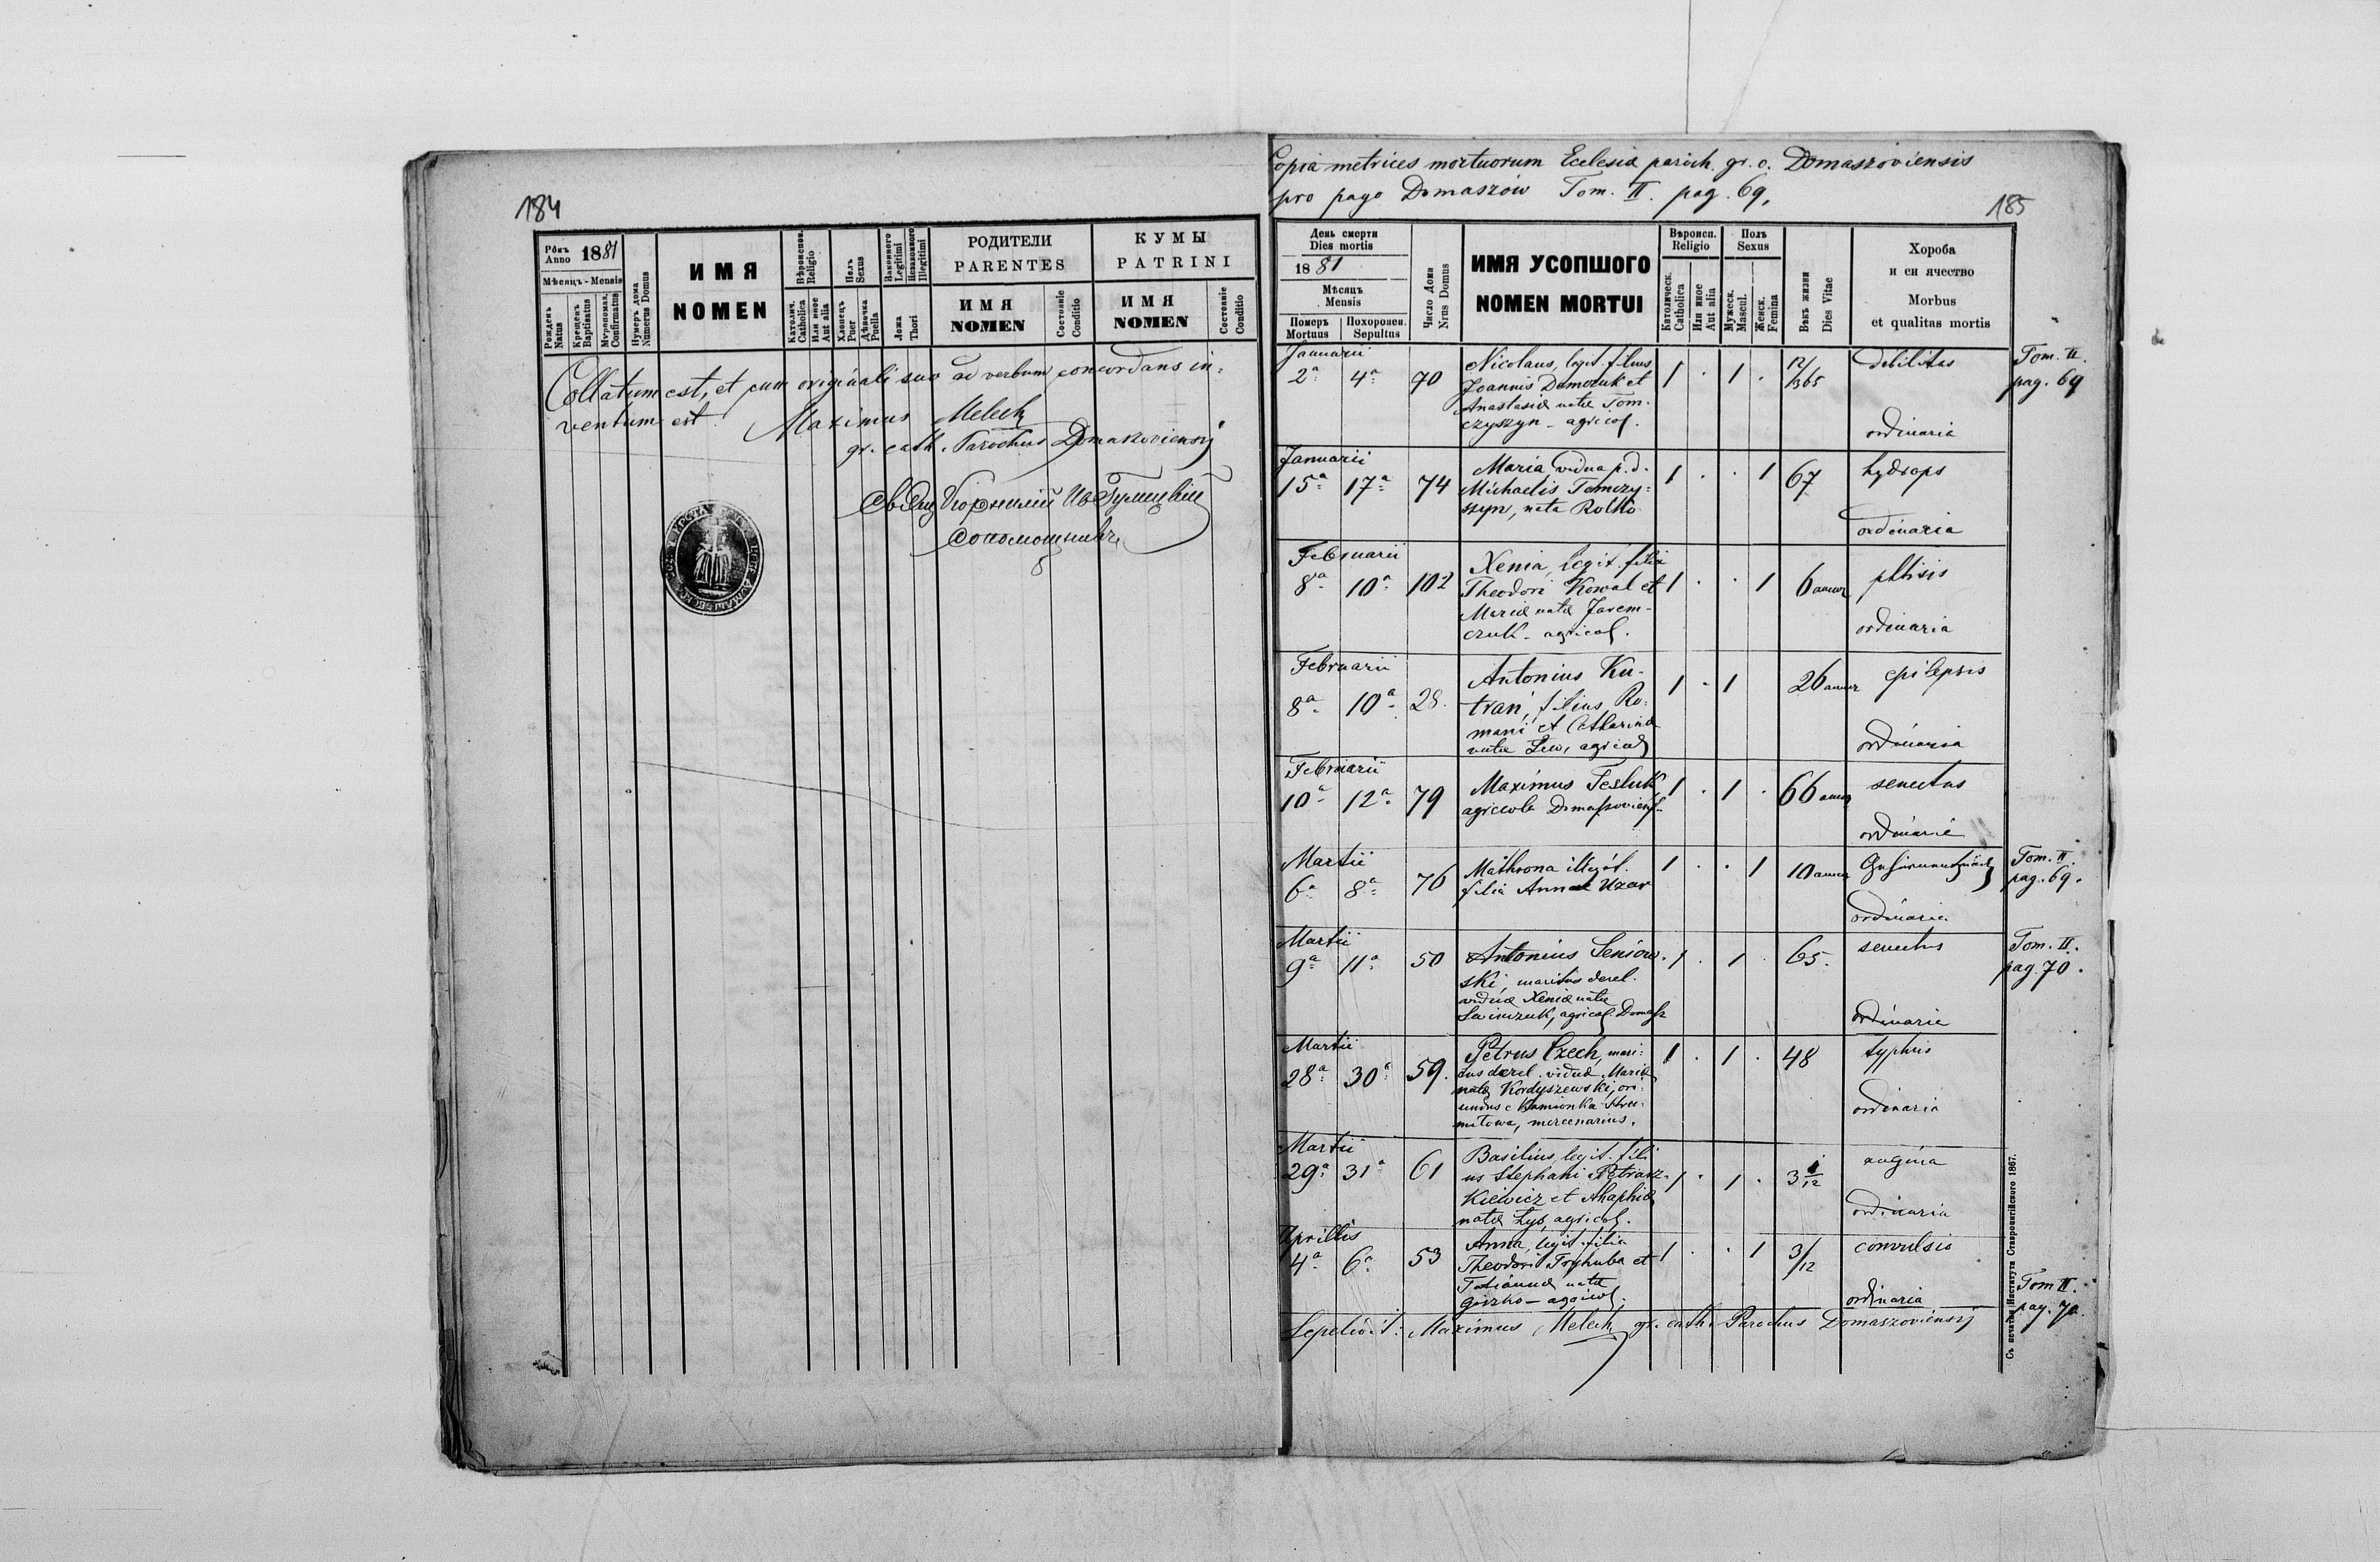 184
Рôкъ
Anno 1881
Мѣсяць - Mensis
Рожденъ
Natus
Крещенъ
Baptisatus
Мѵропомаз.
Confirmatus
Нумеръ дома
Numerus Domus
ИМЯ
NOMEN
Вѣроиспов.
Religio
Католич.
Catholica
Или иное
Aut alia
Полъ
Sexus
Хлопецъ
Puer
Дѣвочка
Puella
Законного
Legitimi
Незаконного
Illegitimi
Ложа
Thori
РОДИТЕЛИ
PARENTES
ИМЯ
NOMEN
Состояніе
Conditio
КУМЫ
PATRINI
ИМЯ
NOMEN
Состояніе
Conditio
Collatum est, et cum originali suo ad verbum concordans in-
ventum est. Maximus Melech
gr. cath. Parochus Domaszoviensis
Copia metrices mortuorum Eclesiæ paroch. gr. c. Domaszoviensis
pro pago Domaszów Tom. II. pag. 69,
185
День смерти
Dies mortis
1881
Мѣсяцъ
Mensis
Померъ
Mortuus
Похоронен.
Sepultus
Число Дома
Nrus Domus
ИМЯ УСОПШОГО
NOMEN MORTUI
Вѣроисп.
Religio
Католическ.
Catholica
Или иное
Aut alia
Полъ
Sexus
Мужеск.
Mascul.
Женск.
Femina
Вѣкъ жизни
Dies Vitae
Хороба
и еи ячество
Morbus
et qualitas mortis
Januarii
2a 4a 70
Nicolaus, legit. filius
Joannis Demczuk et
Anastasiæ natæ Tom-
czyszyn - agricol.
1 . 1 . 12/365
debilitas
ordinaria
Tom. II.
pag. 69
Januarii
15a 17a 74
Maria vidua p. d.
Michaelis Tomczy-
szyn, nata Rotko
1 . . 1 67
hydrops
ordinaria
Februarii
8a 10a 102
Xenia, legit. filia
Theodori Kowal et
Mariæ natæ Jarem-
czuk - agricol.
1 . . 1 6 annor
phtisis
ordinaria
Februarii
8a 10a 28.
Antonius Ku-
tran, filius Ro-
mani et Catharinæ
natæ Lew, agricol
1 . 1 26 annor
epilepsis
ordinaria
Februarii
10a 12a 79
Maximus Tesluk
agricola Domaszoviens.
1 . 1 . 66 annor
senectus
ordinaria
Martii
6a 8a 76
Mathrona illegit.
filia Annæ Uzar
1 . . 1 10 annor
ordinaria
Tom. II.
pag. 69.
Martii
9a 11a 50
Antonius Seniow-
ski, maritus derel.
viduæ Xeniæ natæ
agricol. Domasz
1 . 1 . 65.
senectus
ordinaria
Tom. II.
pag. 70.
Martii
28a 30a 59.
Petrus Czech, mari-
tus derel. viduæ Mariæ
natæ Kordyszewski, ori-
undus e Kamionka Stru-
miłowa, mercenarius.
1 . 1 . 48
typhus
ordinaria
Martii
29a 31a 61
Basilius, legit. fili
us Stephani Petrasz-
kiewicz et Ahaphiæ
natæ Łys, agricol.
1 . 1 . 3 1/12
angina
ordinaria
Aprillis
4a 6a 53
Anna, legit. filia
Theodori Tryhuba et
Tatiannæ natæ
Goszko - agricol.
1 . . 1 3/12
convulsio
ordinaria
Tom II.
pag. 70.
Sepelivit: Maximus Melech gr. cath. Parochus Domaszoviensis
Съ печатни Института Ставропигійского 1867.